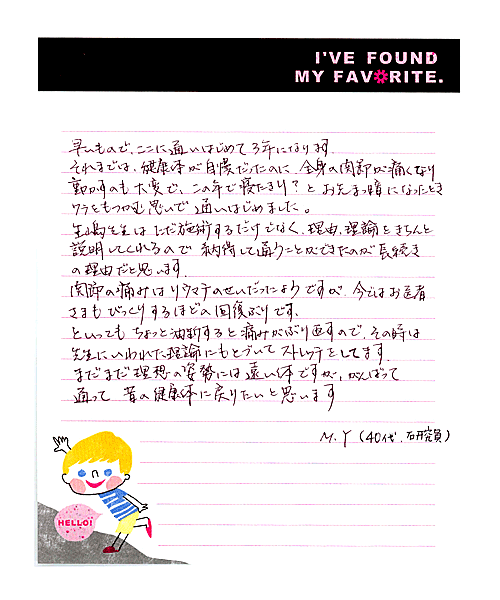 I'VE FOUND
MY FAVORITE.
早いもので、ここに通いはじめて3年になります。
それまでは、健康体が自慢だったのに、全身の関節が痛くなり
動かすのも大変で、この年で寝たきり?とお先まっ暗になったとき
ワラをもつかむ思いで通いはじめました。
先生はただ施術するだけでなく、理由、理論をきちんと
説明してくれるので納得して通うことができたのが長続き
の理由だと思います。
関節の痛みはリウマチのせいだったようですが、今ではお医者
さまもびっくりするほどの回復ぶりです。
といってもちょっと油断すると痛みがぶり返すので、その時は
先生にいわれた理論にもとづいてストレッチをしてます。
まだまだ理想の姿勢には遠い体ですが、がんばって
通って昔の健康体に戻りたいと思います
M.Y (40代、研究員)
HELLO!